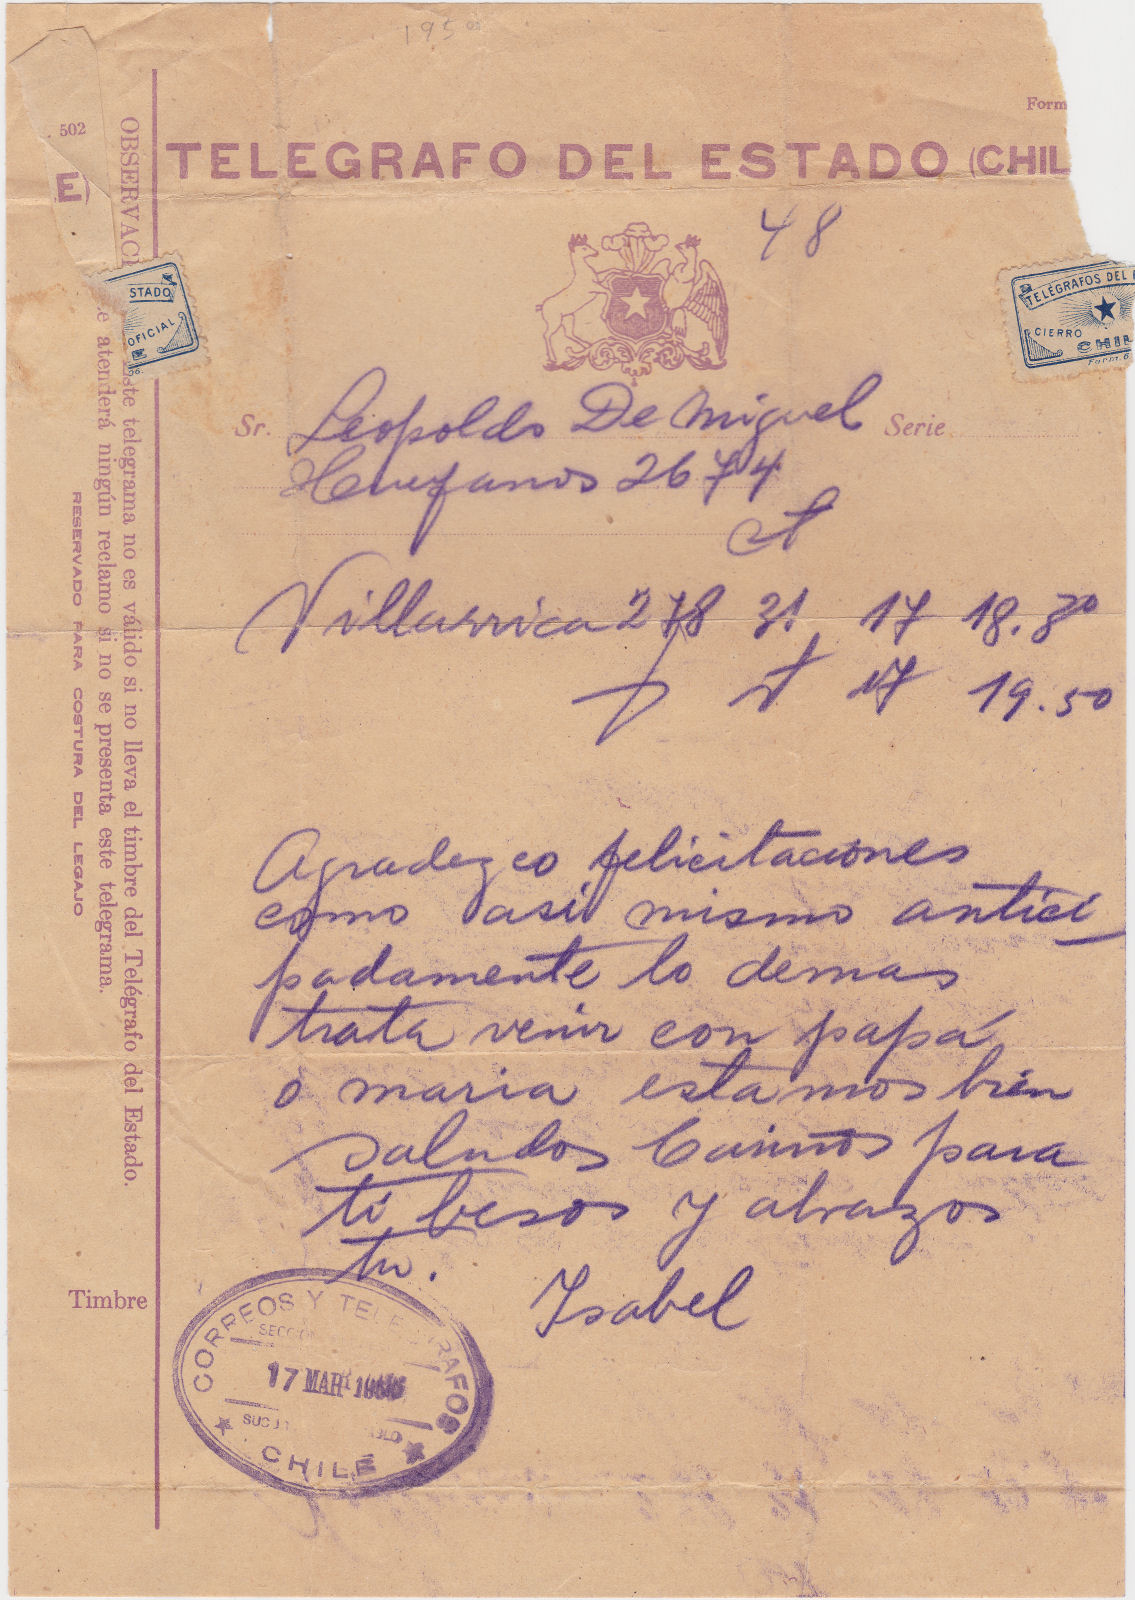 1950
Form
502
E)
TELEGRAFO DEL ESTADO (CHIL
48
STADO
OFICIAL
TELÉGRAFOS DEL
CIERRO
CHIL
Form. 6
Sr. Leopoldo De Miguel Serie
Huerfanos 2674
Villarrica 278 31 17 18.30
17 19.50
Agradezco felicitaciones
como asi mismo antici
padamente lo demas
trata venir con papá
ó maria estamos bien
saludos Cariños para
ti besos y abrazos
tu.
Isabel
OBSERVACI
Este telegrama no es válido si no lleva el timbre del Telégrafo del Estado.
atenderá ningún reclamo si no se presenta este telegrama.
RESERVADO PARA COSTURA DEL LEGAJO
Timbre
CORREOS Y TELEGRAFOS
SECCION
17 MAR
SUC
CHILE